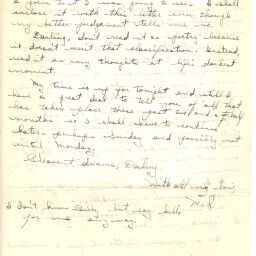 a poem that I was going to send. I shall
enclose it with this letter even though
my better judgement tells me no.
Darling, don't read it as poetry because
it doesn't merit that classification. Instead
read it as my thoughts at life's darkest
moment.
My time is up for tonight and still I
have a great deal to tell you of all that
has taken place these past two and a half
months so I shall have to continue
later - perhaps Sunday and possibly not
until Monday.
Pleasant dreams, Darling.
With all my love,
I don't know Billy but say hello
for me anyway.